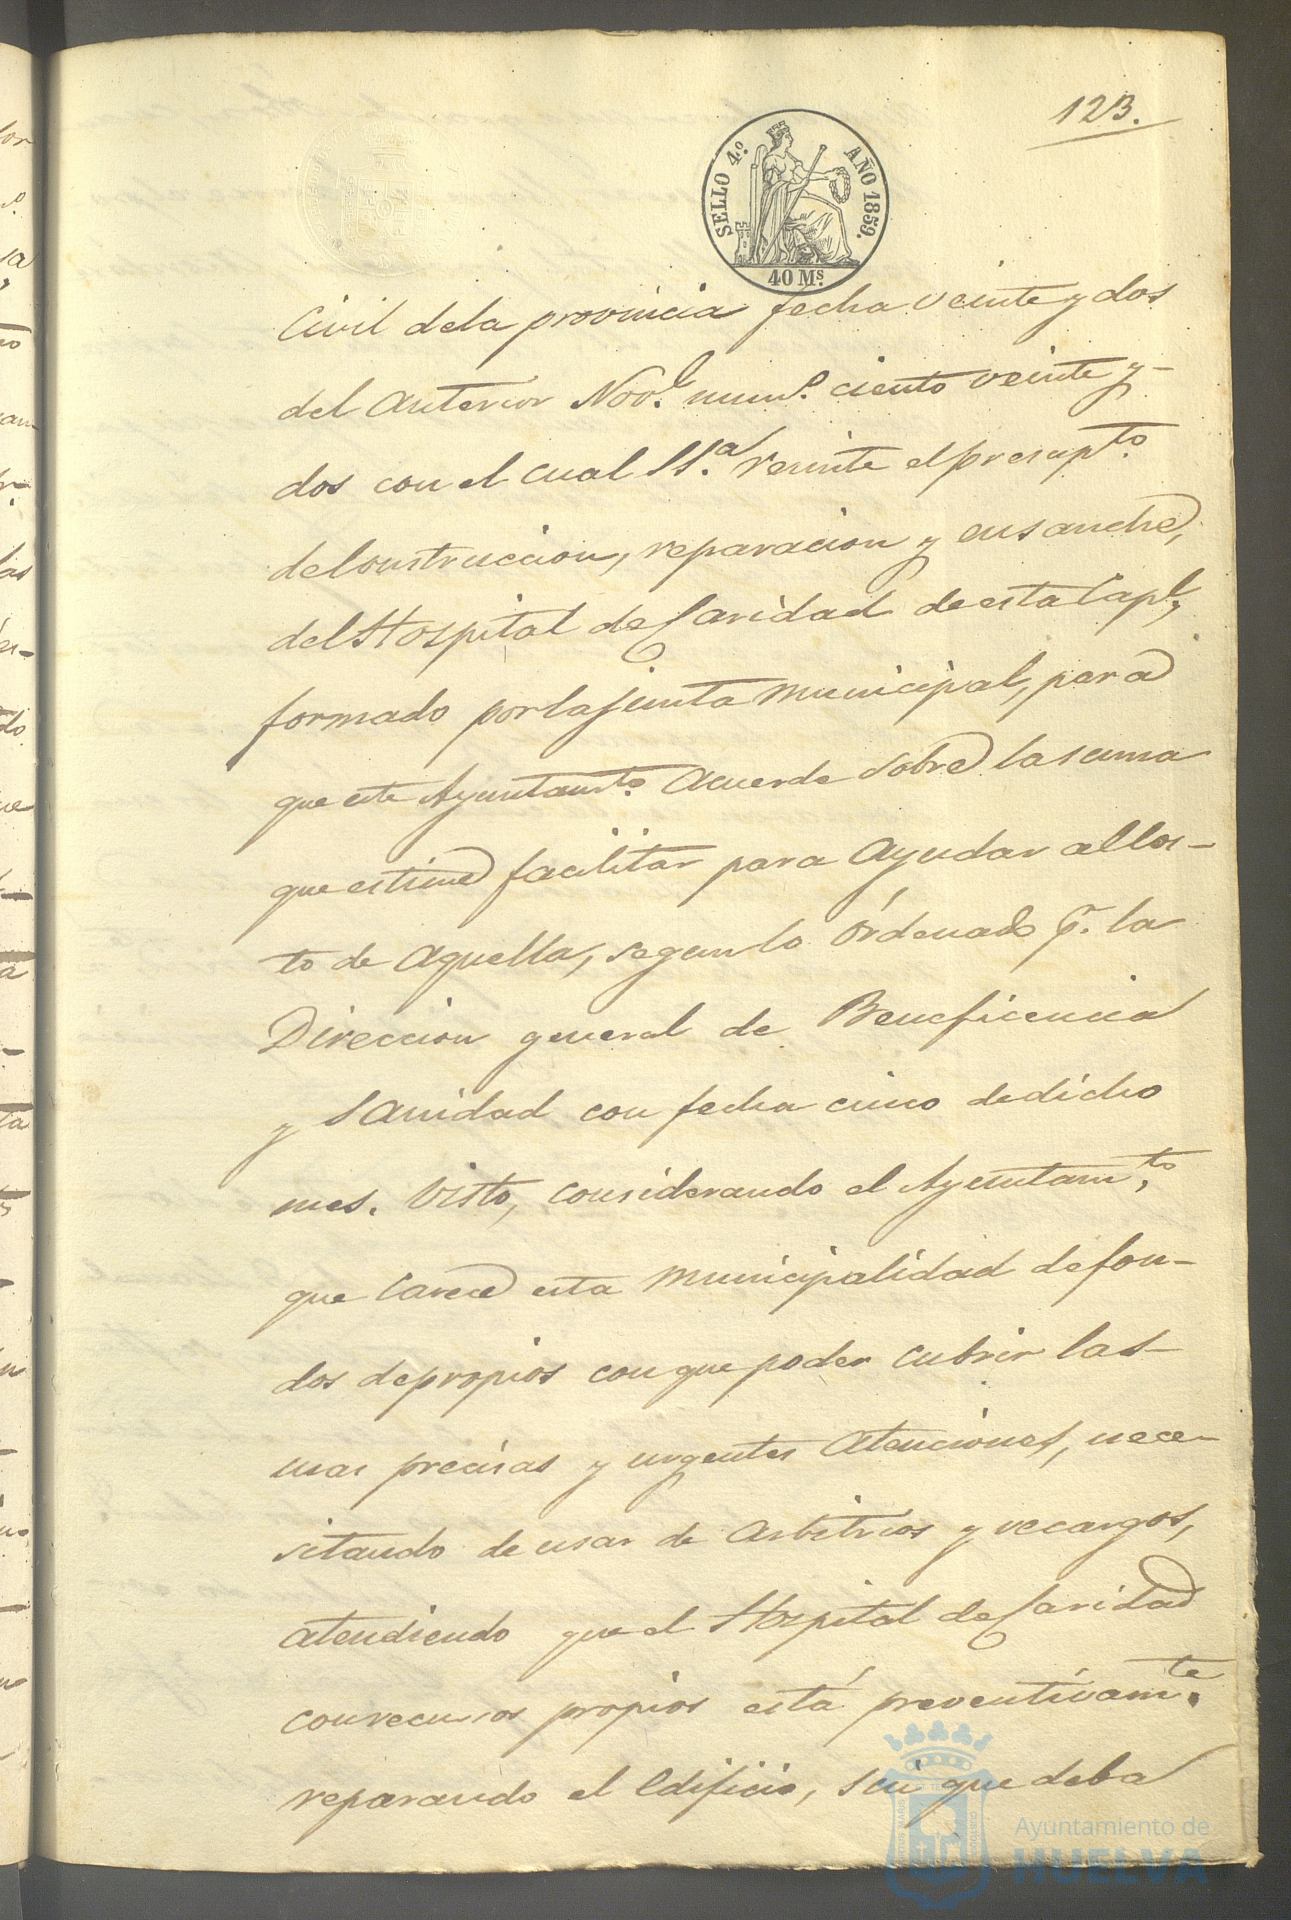 123.
SELLO 4.º AÑO 1859.
40 Ms.
Civil dela provincia fecha veinte y dos
del anterior Nov.e num.º ciento veinte y-
dos con el cual S S.a remite el presup.to
de Construccion, reparacion y ensanche,
del Hospital de Caridad de esta Capl,
formado por la Junta municipal, para
que este Ayuntamto. acuerde sobre la suma
que estime facilitar para ayudar al cos-
to de aquella, segun lo órdenado pr. la
Direccion general de Beneficencia
y Sanidad con fecha cinco de dicho
mes. Visto, considerando el Ayuntam.to
que carece esta municipalidad de fon-
dos de propios con que poder cubrir las-
mas precisas y urgentes atenciones, nece-
sitando de usar de arbitrios y recargos,
atendiendo que el Hospital de Caridad
con recursos propios está preventivam.te
reparando el Edificio, sin que deba
Ayuntamiento de
HUELVA